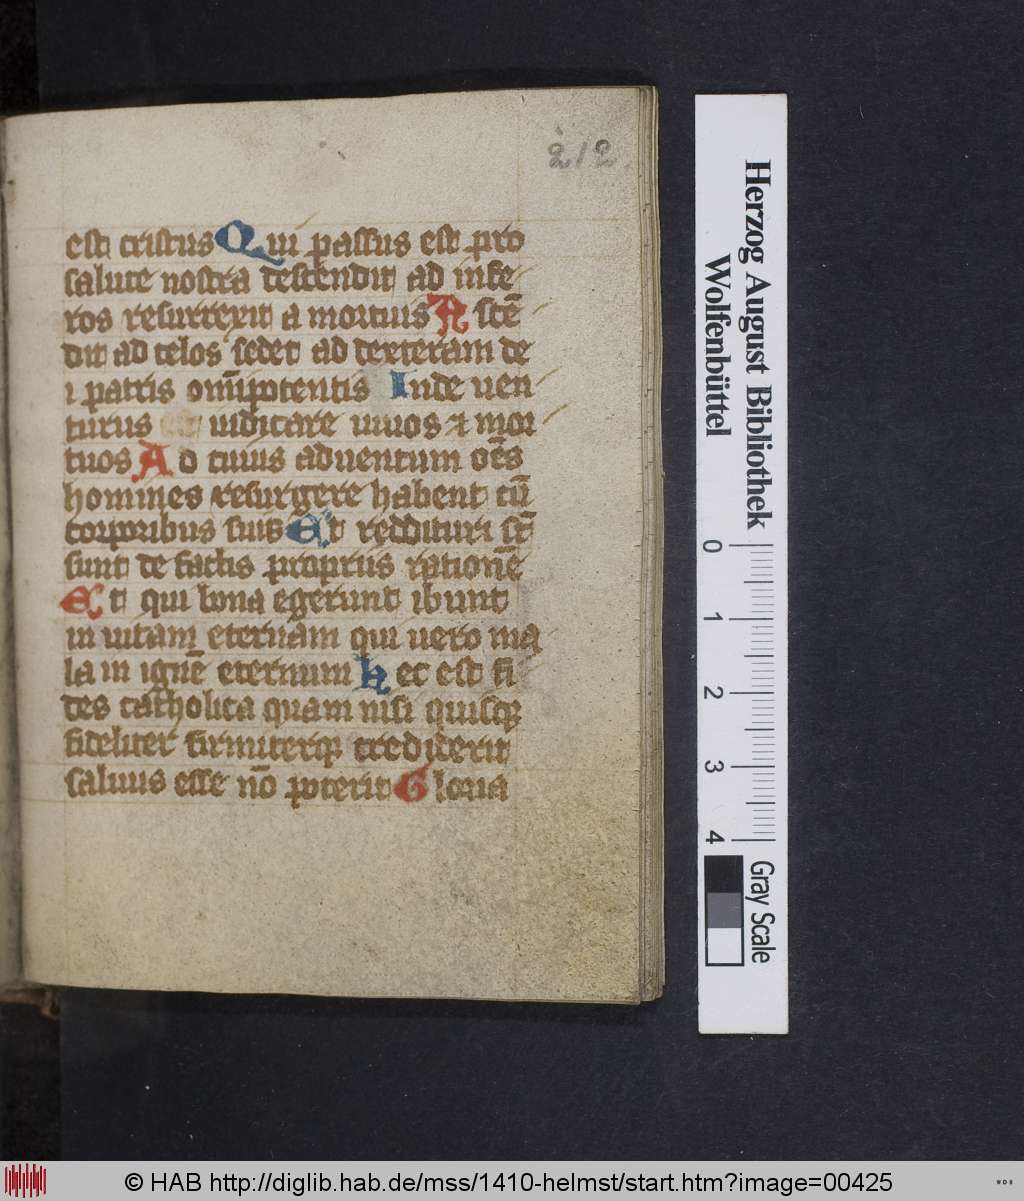 212
est cristus Qui passus est pro
salute nostra descendit ad infe
ros resurrexit a mortuis Ascē
dit ad celos sedet ad dexteram de
i patris om̄ipotentis Inde uen
turus iudicare uiuos et mor
tuos Ad cuius aduentum oēs
homines resurgere habent cū
corporibus suis Et reddituri
sunt de factis propriis rationē
Et qui bona egerunt ibunt
in uitam eternam qui uero ma
la in ignē eternum Hec est fi
des catholica quam nisi quisqꝫ
fideliter firmiterqꝫ crediderit
saluus esse nō poterit Gloria
Herzog August Bibliothek
Wolfenbüttel
0 1 2 3 4
Gray Scale
© HAB http://diglib.hab.de/mss/1410-helmst/start.htm?image=00425